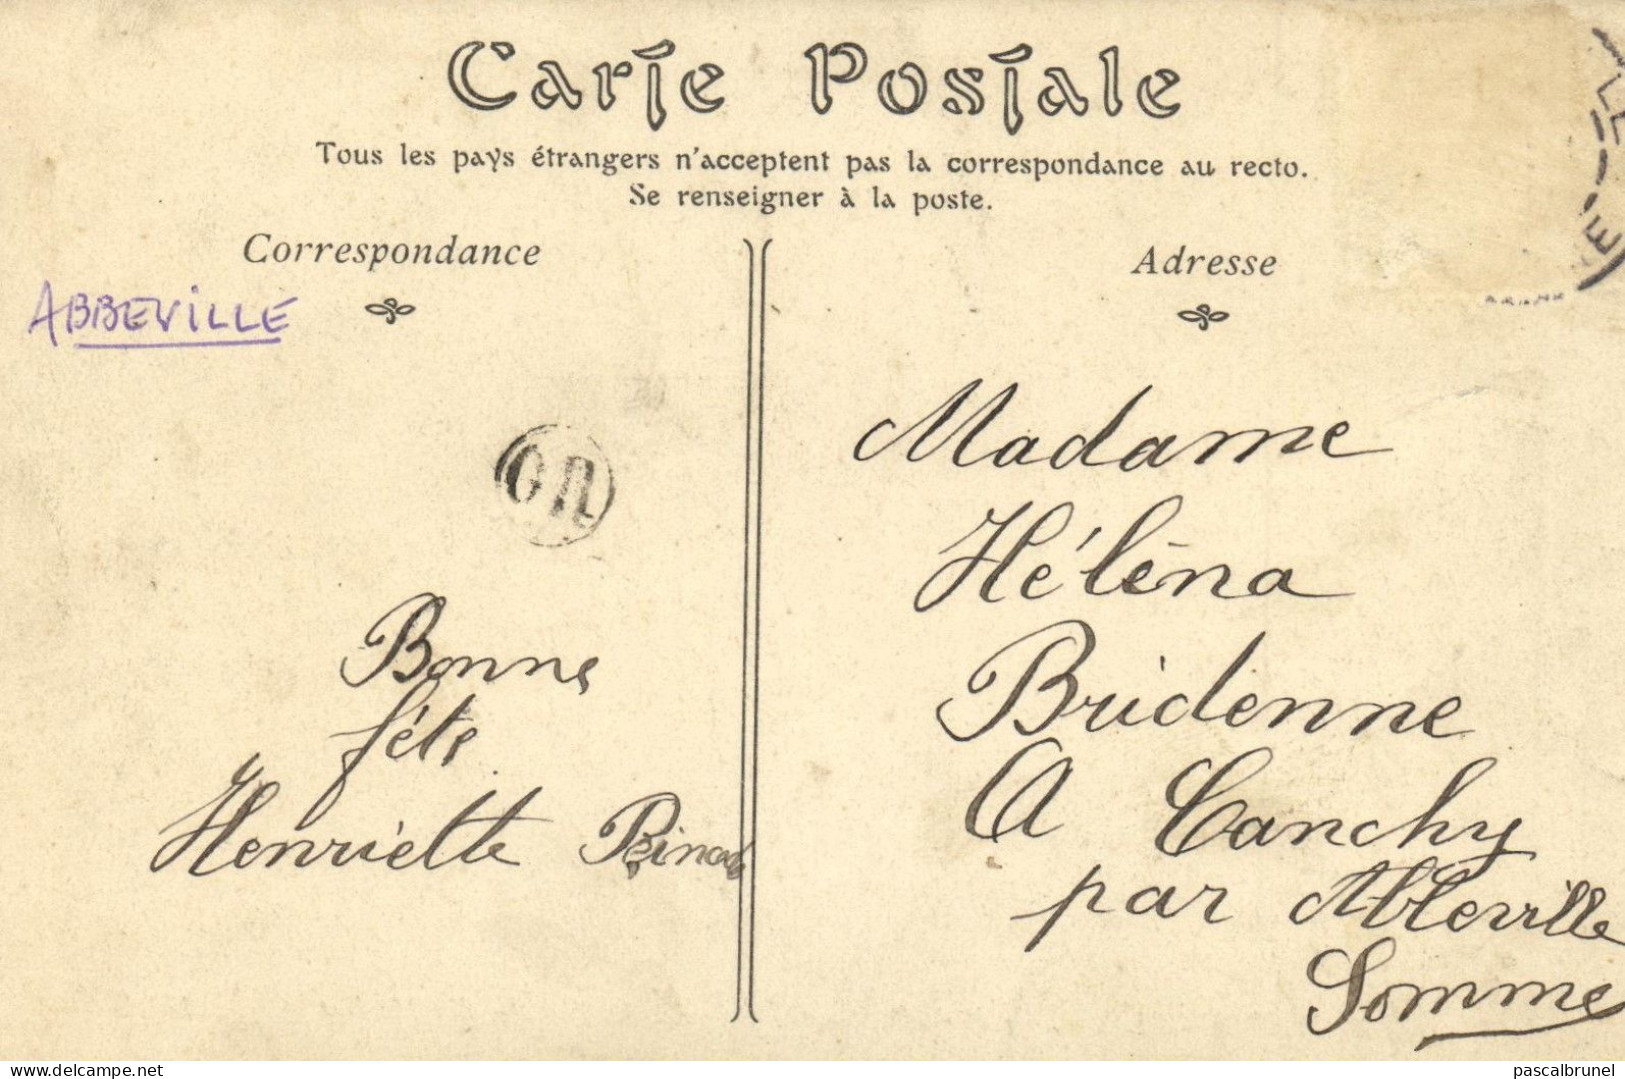 Carte Postale
Tous les pays étrangers n'acceptent pas la correspondance au recto.
Se renseigner à la poste.
Correspondance
Adresse
ABBEVILLE
Madame
Héléna
Bridenne
A Canchy
par Abbeville
Somme
OR
Bonne
fête
Henriette
delcampe.net
pascalbrunel